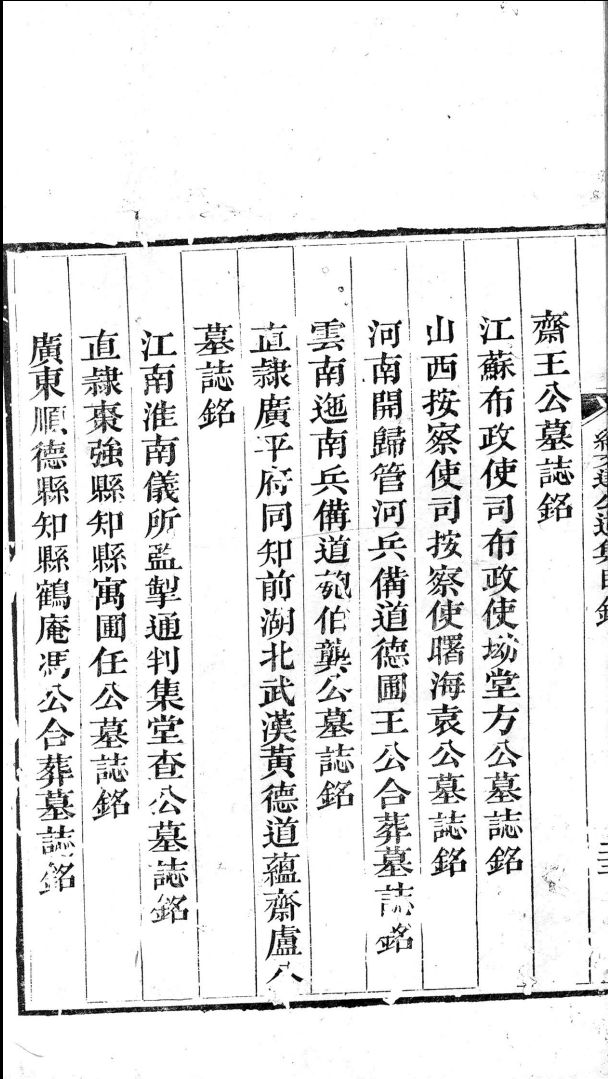 齋王公墓誌銘
江蘇布政使司布政使坳堂方公墓誌銘
山西按察使司按察使曙海袁公墓誌銘
河南開歸管河兵備道德圃王公合葬墓誌銘
雲南迤南兵備道匏伯龔公墓誌銘
直隷廣平府同知前湖北武漢黃德道蘊齋盧公
墓誌銘
江南淮南儀所監掣通判集堂查公墓誌銘
直隷棗強縣知縣寓圃任公墓誌銘
廣東順德縣知縣鶴庵馮公合葬墓誌銘